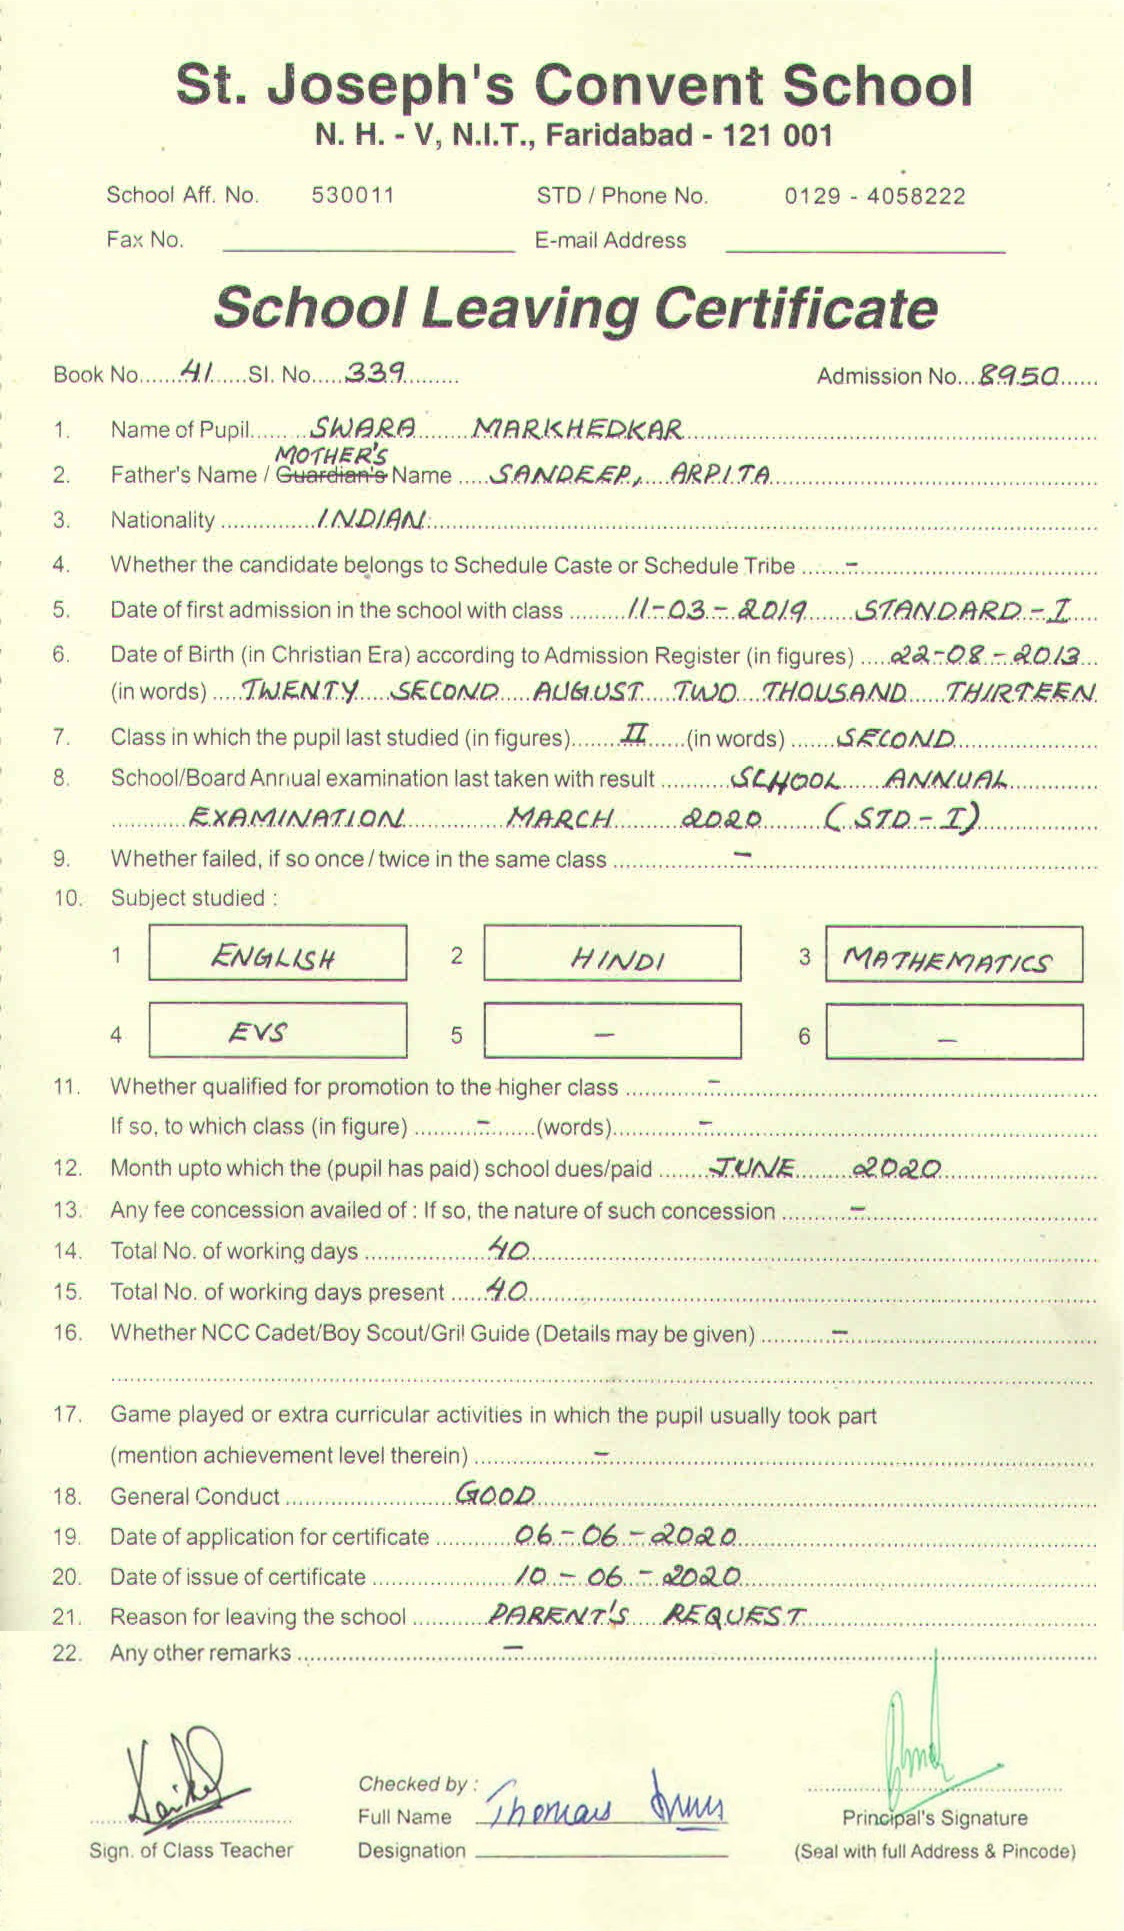 St. Joseph's Convent School
N. H. - V, N.I.T., Faridabad - 121 001
School Aff. No. 530011 STD / Phone No. 0129 - 4058222
Fax No. E-mail Address
School Leaving Certificate
Book No. 41 Sl. No. 339 Admission No. 8950
1. Name of Pupil SWARA MARKHEDKAR
MOTHER'S
2. Father's Name / Guardian's Name SANDEEP, ARPITA
3. Nationality INDIAN
4. Whether the candidate belongs to Schedule Caste or Schedule Tribe -
5. Date of first admission in the school with class 11-03-2019 STANDARD-I
6. Date of Birth (in Christian Era) according to Admission Register (in figures) 22-08-2013
(in words) TWENTY SECOND AUGUST TWO THOUSAND THIRTEEN
7. Class in which the pupil last studied (in figures) II (in words) SECOND
8. School/Board Annual examination last taken with result SCHOOL ANNUAL
EXAMINATION MARCH 2020 (STD-I)
9. Whether failed, if so once / twice in the same class -
10. Subject studied :
1 ENGLISH 2 HINDI 3 MATHEMATICS
4 EVS 5 - 6 -
11. Whether qualified for promotion to the higher class -
If so, to which class (in figure) - (words) -
12. Month upto which the (pupil has paid) school dues/paid JUNE 2020
13. Any fee concession availed of : If so, the nature of such concession -
14. Total No. of working days 40
15. Total No. of working days present 40
16. Whether NCC Cadet/Boy Scout/Gril Guide (Details may be given) -
17. Game played or extra curricular activities in which the pupil usually took part
(mention achievement level therein) -
18. General Conduct GOOD
19. Date of application for certificate 06-06-2020
20. Date of issue of certificate 10-06-2020
21. Reason for leaving the school PARENT'S REQUEST
22. Any other remarks -
Checked by :
Full Name Thomas
Principal's Signature
Sign. of Class Teacher Designation (Seal with full Address & Pincode)